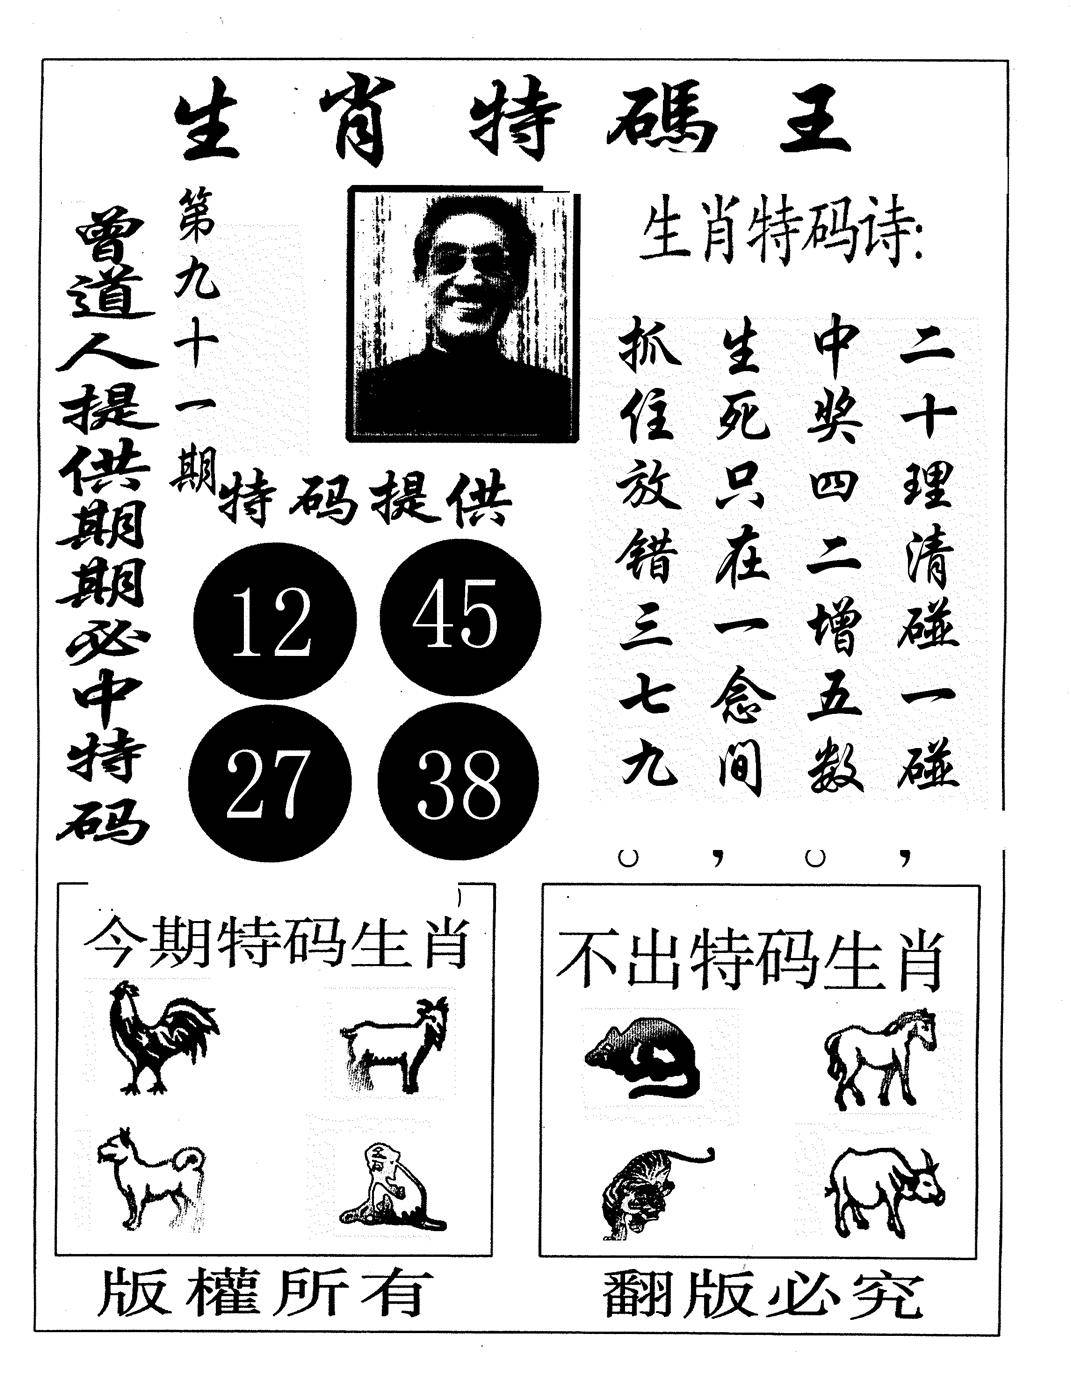 生肖特碼王
曾道人提供期期必中特码
第九十一期
生肖特码诗:
二十理清碰一碰，
中奖四二增五数。
生死只在一念间，
抓住放错三七九。
特码提供
12
45
27
38
今期特码生肖
不出特码生肖
版權所有
翻版必究